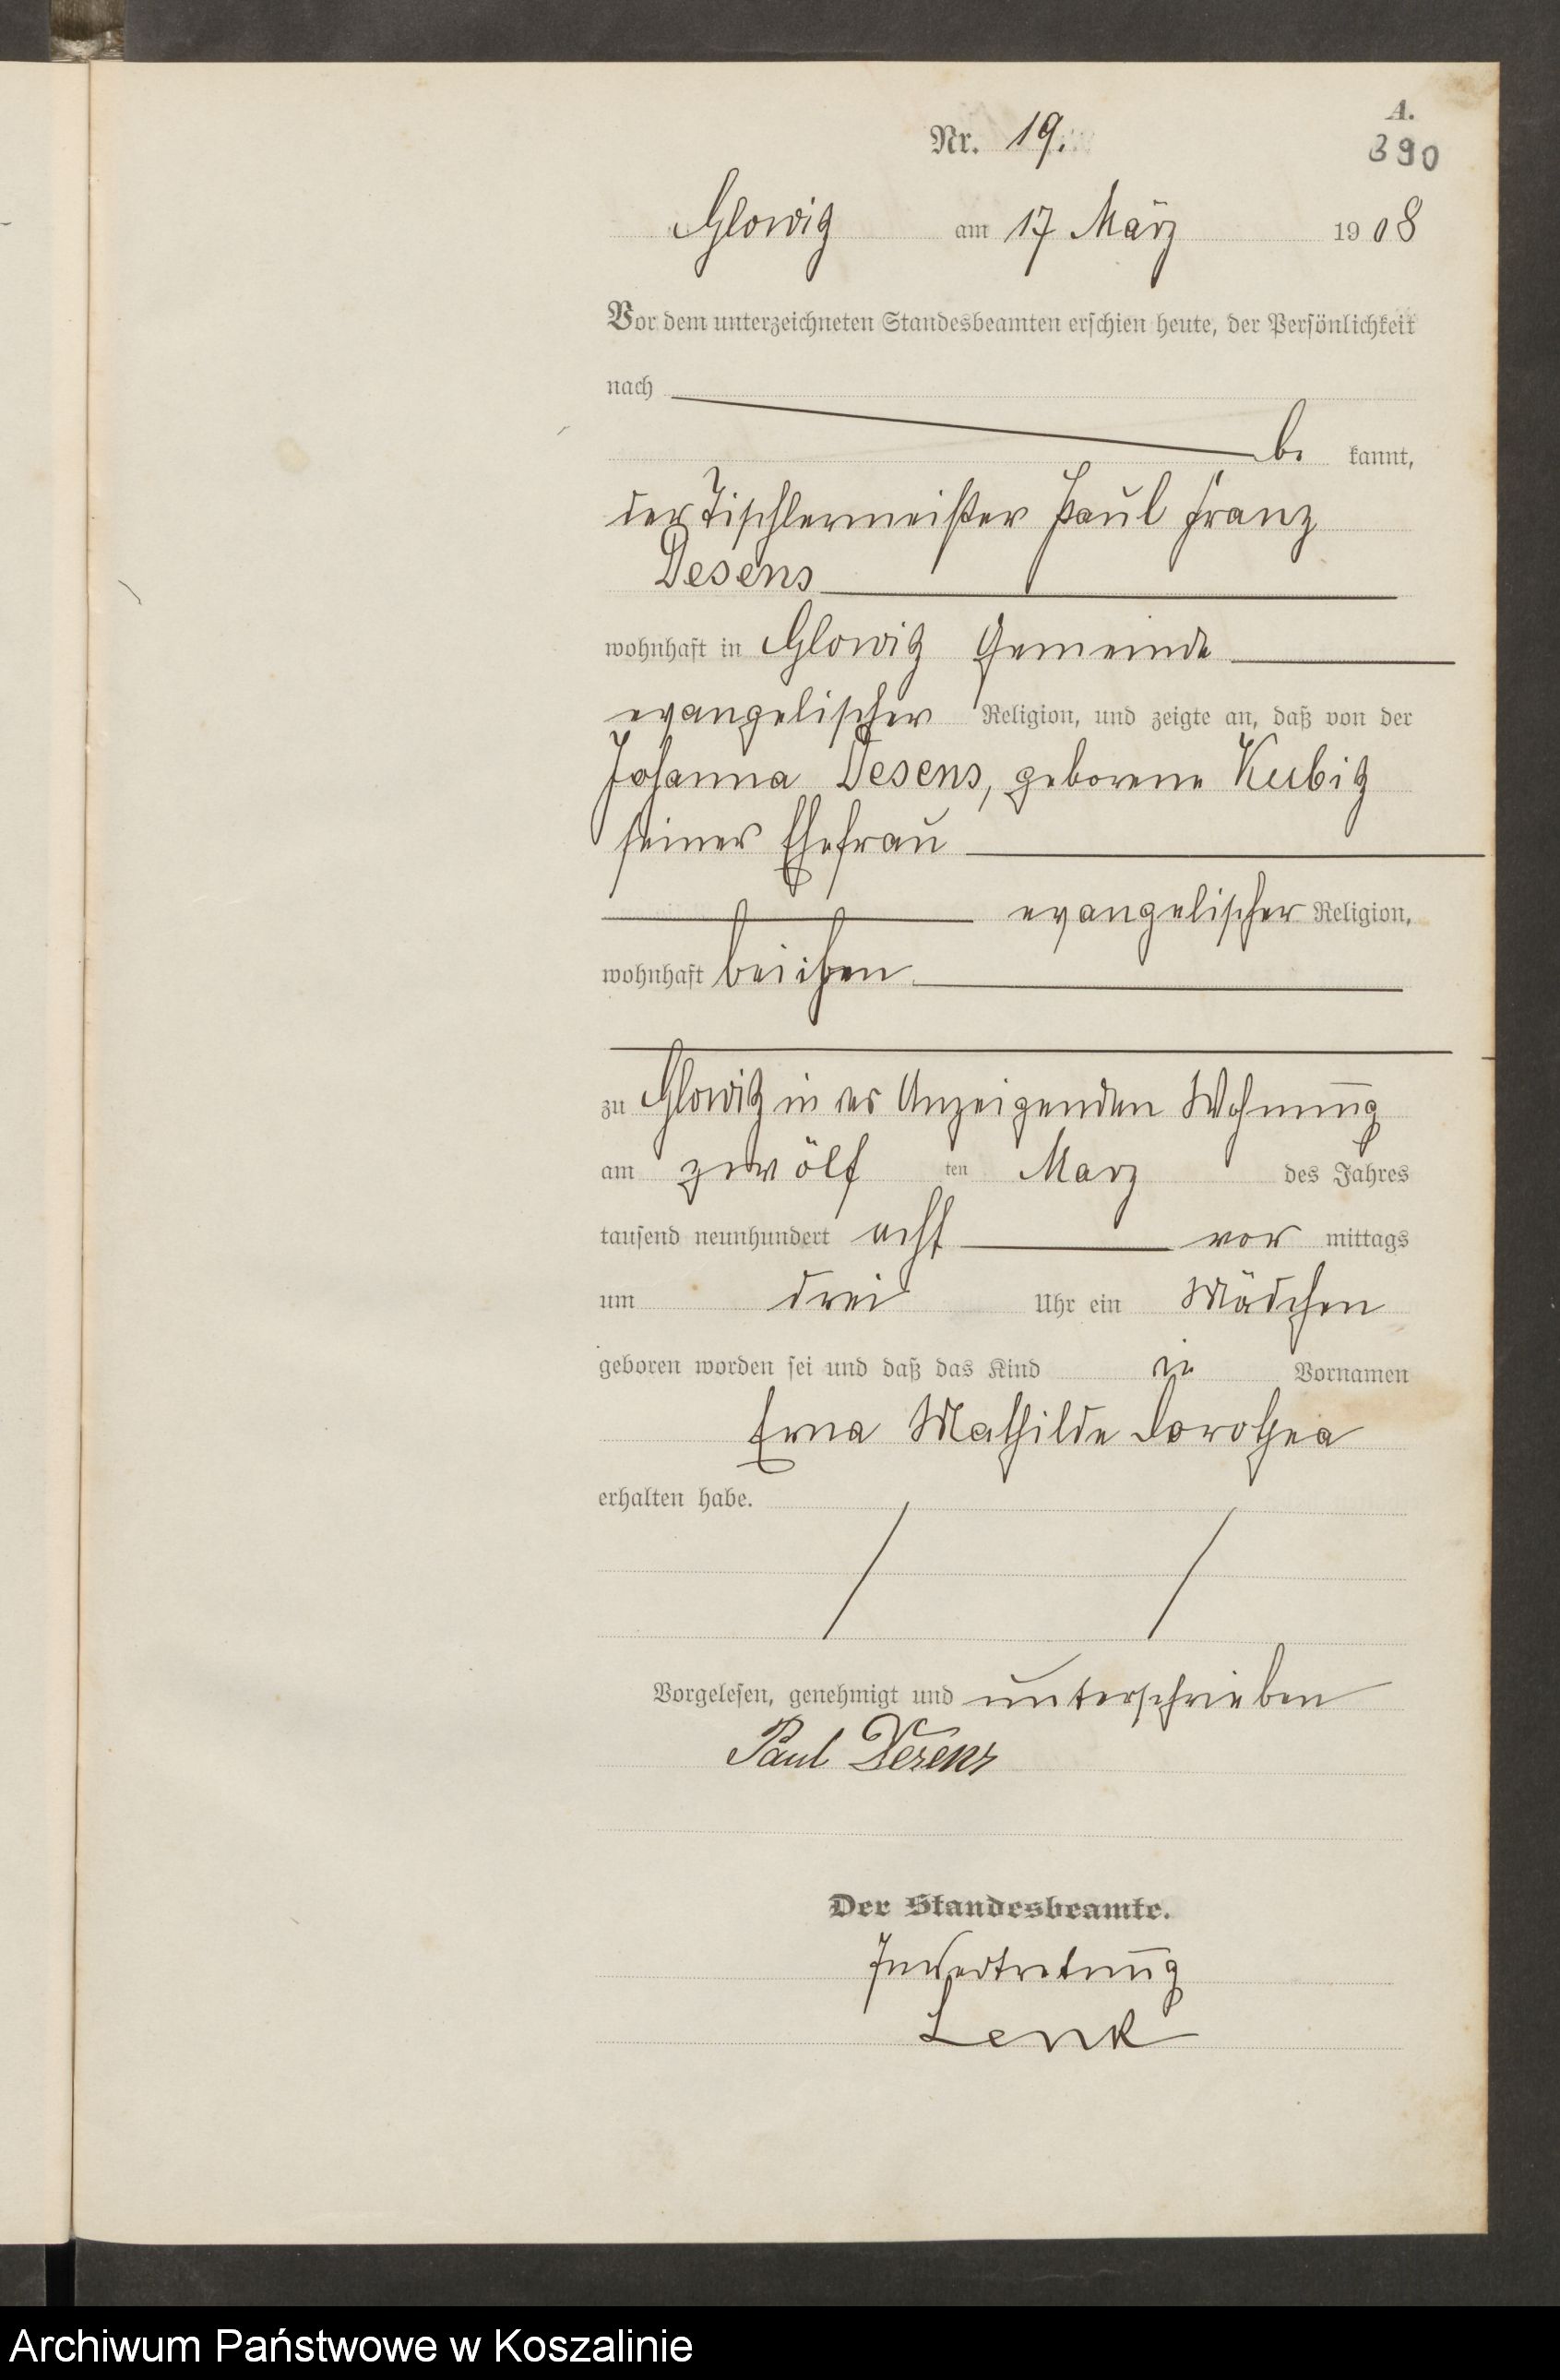 A.
Nr. 19.
390
Glowitz am 17 März 1908
Vor dem unterzeichneten Standesbeamten erschien heute, der Persönlichkeit
nach
be kannt,
der Tischlermeister Paul Franz
Desens
wohnhaft in Glowitz Gemeinde
evangelischer Religion, und zeigte an, daß von der
Johanna Desens, geborene Kubitz
seiner Ehefrau
evangelischer Religion,
wohnhaft bei ihm
zu Glowitz in des Anzeigenden Wohnung
am zwölf ten Marz des Jahres
tausend neunhundert acht vor mittags
um drei Uhr ein Mädchen
geboren worden sei und daß das Kind die Vornamen
Erna Mathilde Dorothea
erhalten habe.
Vorgelesen, genehmigt und unterschrieben
Paul Desens
Der Standesbeamte.
In Vertretung
Lenk
Archiwum Państwowe w Koszalinie